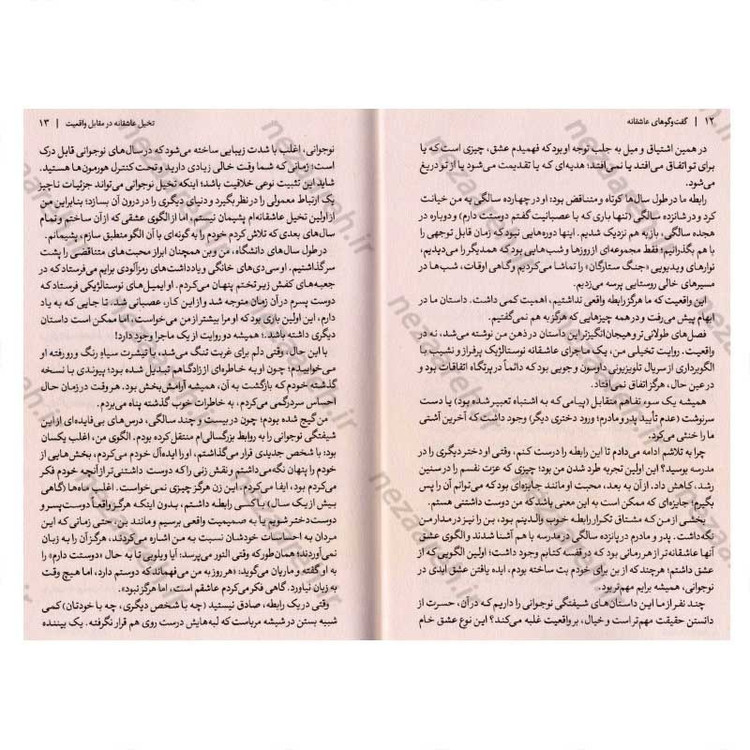 ۱۲ | گفت‌وگوهای عاشقانه
در همین اشتیاق و میل به جلب توجه او بود که فهمیدم عشق، چیزی است که یا
برای تو اتفاق می‌افتد یا نمی‌افتد؛ هدیه‌ای که یا تقدیمت می‌شود یا از تو دریغ
می‌شود.
رابطه ما در طول سال‌ها کوتاه و متناقض بود؛ او در چهارده سالگی به من خیانت
کرد و در شانزده سالگی (تنها باری که با عصبانیت گفتم دوستت دارم) و دوباره در
هجده سالگی، باز به هم نزدیک شدیم. اینها دوره‌هایی نبود که زمان قابل توجهی را
با هم بگذرانیم؛ فقط مجموعه‌ای از روزها و شب‌هایی بود که همدیگر را می‌دیدیم،
نوارهای ویدیویی «جنگ ستارگان» را تماشا می‌کردیم و گاهی اوقات، شب‌ها در
مسیرهای خالی روستایی پرسه می‌زدیم.
این واقعیت که ما هرگز رابطه واقعی نداشتیم، اهمیت کمی داشت. داستان ما در
ابهام پیش می‌رفت و در همه چیزهایی که هرگز به هم نمی‌گفتیم.
فصل‌های طولانی‌تر و هیجان‌انگیزتر این داستان در ذهن من نوشته می‌شد، نه در
واقعیت. روایت تخیلی من، یک ماجرای عاشقانه نوستالژیک پرفراز و نشیب با
الگوبرداری از سریال تلویزیونی داوسون و جویی بود که دائماً در پرتگاه اتفاقات بود و
در عین حال، هرگز اتفاق نمی‌افتاد.
همیشه یک سوء تفاهم متقابل (پیامی که به اشتباه تعبیر شده بود) یا دست
سرنوشت (عدم تأیید پدر و مادرم؛ ورود دختری دیگر) وجود داشت که آخرین آشتی
ما را خنثی می‌کرد.
چرا به تلاشم ادامه می‌دادم تا این رابطه را درست کنم، وقتی او دختر دیگری را در
مدرسه بوسید؟ این اولین تجربه طرد شدن من بود؛ چیزی که عزت نفسم را در سنین
رشد، کاهش داد. از آن به بعد، محبت او مانند جایزه‌ای بود که می‌توانم آن را پس
بگیرم؛ جایزه‌ای که ممکن است به این معنی باشد که من دوست داشتنی هستم.
بخشی از من که مشتاق تکرار رابطه خوب والدینم بود، بن را نیز در مدار من
نگه داشت. پدر و مادرم در پانزده سالگی در مدرسه با هم آشنا شدند و الگوی عشق
آنها عاشقانه‌تر از هر رمانی بود که در قفسه کتابم وجود داشت؛ اولین الگویی که از
عشق داشتم؛ هرچند که از بن برای خودم بت ساخته بودم، ایده یافتن عشق ابدی در
نوجوانی، همیشه برایم مهم‌تر بود.
چند نفر از ما این داستان‌های شیفتگی نوجوانی را داریم که در آن، حسرت از
دانستن حقیقت مهم‌تر است و خیال، بر واقعیت غلبه می‌کند؟ این نوع عشق خام
تخیل عاشقانه در مقابل واقعیت | ۱۳
نوجوانی، اغلب با شدت زیبایی ساخته می‌شود که در سال‌های نوجوانی قابل درک
است؛ زمانی که شما وقت خالی زیادی دارید و تحت کنترل هورمون‌ها هستید.
شاید این تثبیت نوعی خلاقیت باشد؛ اینکه تخیل نوجوانی می‌تواند جزئیات ناچیز
یک ارتباط معمولی را در نظر بگیرد و دنیای دیگری را در درون آن بسازد؛ بنابراین من
از اولین تخیل عاشقانه‌ام پشیمان نیستم، اما از الگوی عشقی که از آن ساختم و تمام
سال‌های بعدی که تلاش کردم خودم را به گونه‌ای با آن الگو منطبق سازم، پشیمانم.
در طول سال‌های دانشگاه، من و بن همچنان ابراز محبت‌های متناقضی را پشت
سر گذاشتیم. او سی‌دی‌های خانگی و یادداشت‌های رمزآلودی برایم می‌فرستاد که در
جعبه‌های کفش زیر تختم پنهان می‌کردم. او ایمیل‌های نوستالژیکی فرستاد که
دوست پسرم در آن زمان متوجه شد و از این کار، عصبانی شد. تا جایی که به یاد
دارم، این اولین باری بود که او مرا بیشتر از من می‌خواست، اما ممکن است داستان
دیگری داشته باشد.؛ همیشه دو روایت از یک ماجرا وجود دارد!
با این حال، وقتی دلم برای غربت تنگ می‌شد، با تیشرت سیاهِ رنگ و رو رفته او
می‌خوابیدم؛ چون او به خاطره‌ای از زادگاهم تبدیل شده بود؛ پیوندی با نسخه
گذشته خودم که بازگشت به آن، همیشه آرامش‌بخش بود. هر وقت در زمان حال
احساس سردرگمی می‌کردم، به خاطرات خوب گذشته پناه می‌بردم.
من گیج شده بودم؛ چون در بیست و چند سالگی، درس‌های بی‌فایده‌ای از این
شیفتگی نوجوانی را به روابط بزرگسالی‌ام منتقل کرده بودم. الگوی من، اغلب یکسان
بود: با شخص جدیدی قرار می‌گذاشتم، او را ایده‌آل خودم می‌کردم، بخش‌هایی از
خودم را پنهان نگه می‌داشتم و نقش زنی را که دوست داشتنی‌تر از آنچه خودم فکر
می‌کردم بود، ایفا می‌کردم. این زن هرگز چیزی نمی‌خواست. اغلب ماه‌ها (گاهی
بیش از یک سال) با کسی رابطه داشتم، بدون اینکه هرگز واقعاً دوست‌پسر و
دوست‌دختر شویم یا به صمیمیت واقعی برسیم و مانند بن، حتی زمانی که این
مردان به احساسات خودشان نسبت به من اشاره می‌کردند، هرگز آن را به زبان
نمی‌آوردند؛ همان‌طور که وقتی النور می‌پرسد: آیا ویلوبی تا به حال «دوستت دارم» را
به او گفته و ماریان می‌گوید: «هر روز به من می‌فهماند که دوستم دارد، اما هیچ وقت
به زبان نیاورد. گاهی فکر می‌کردم عاشقم است، اما هرگز نبود».
وقتی در یک رابطه، صادق نیستید (چه با شخص دیگری، چه با خودتان) کمی
شبیه بستن در شیشه مرباست که لبه‌هایش درست روی هم قرار نگرفته. یک بیننده
nezaareh.ir